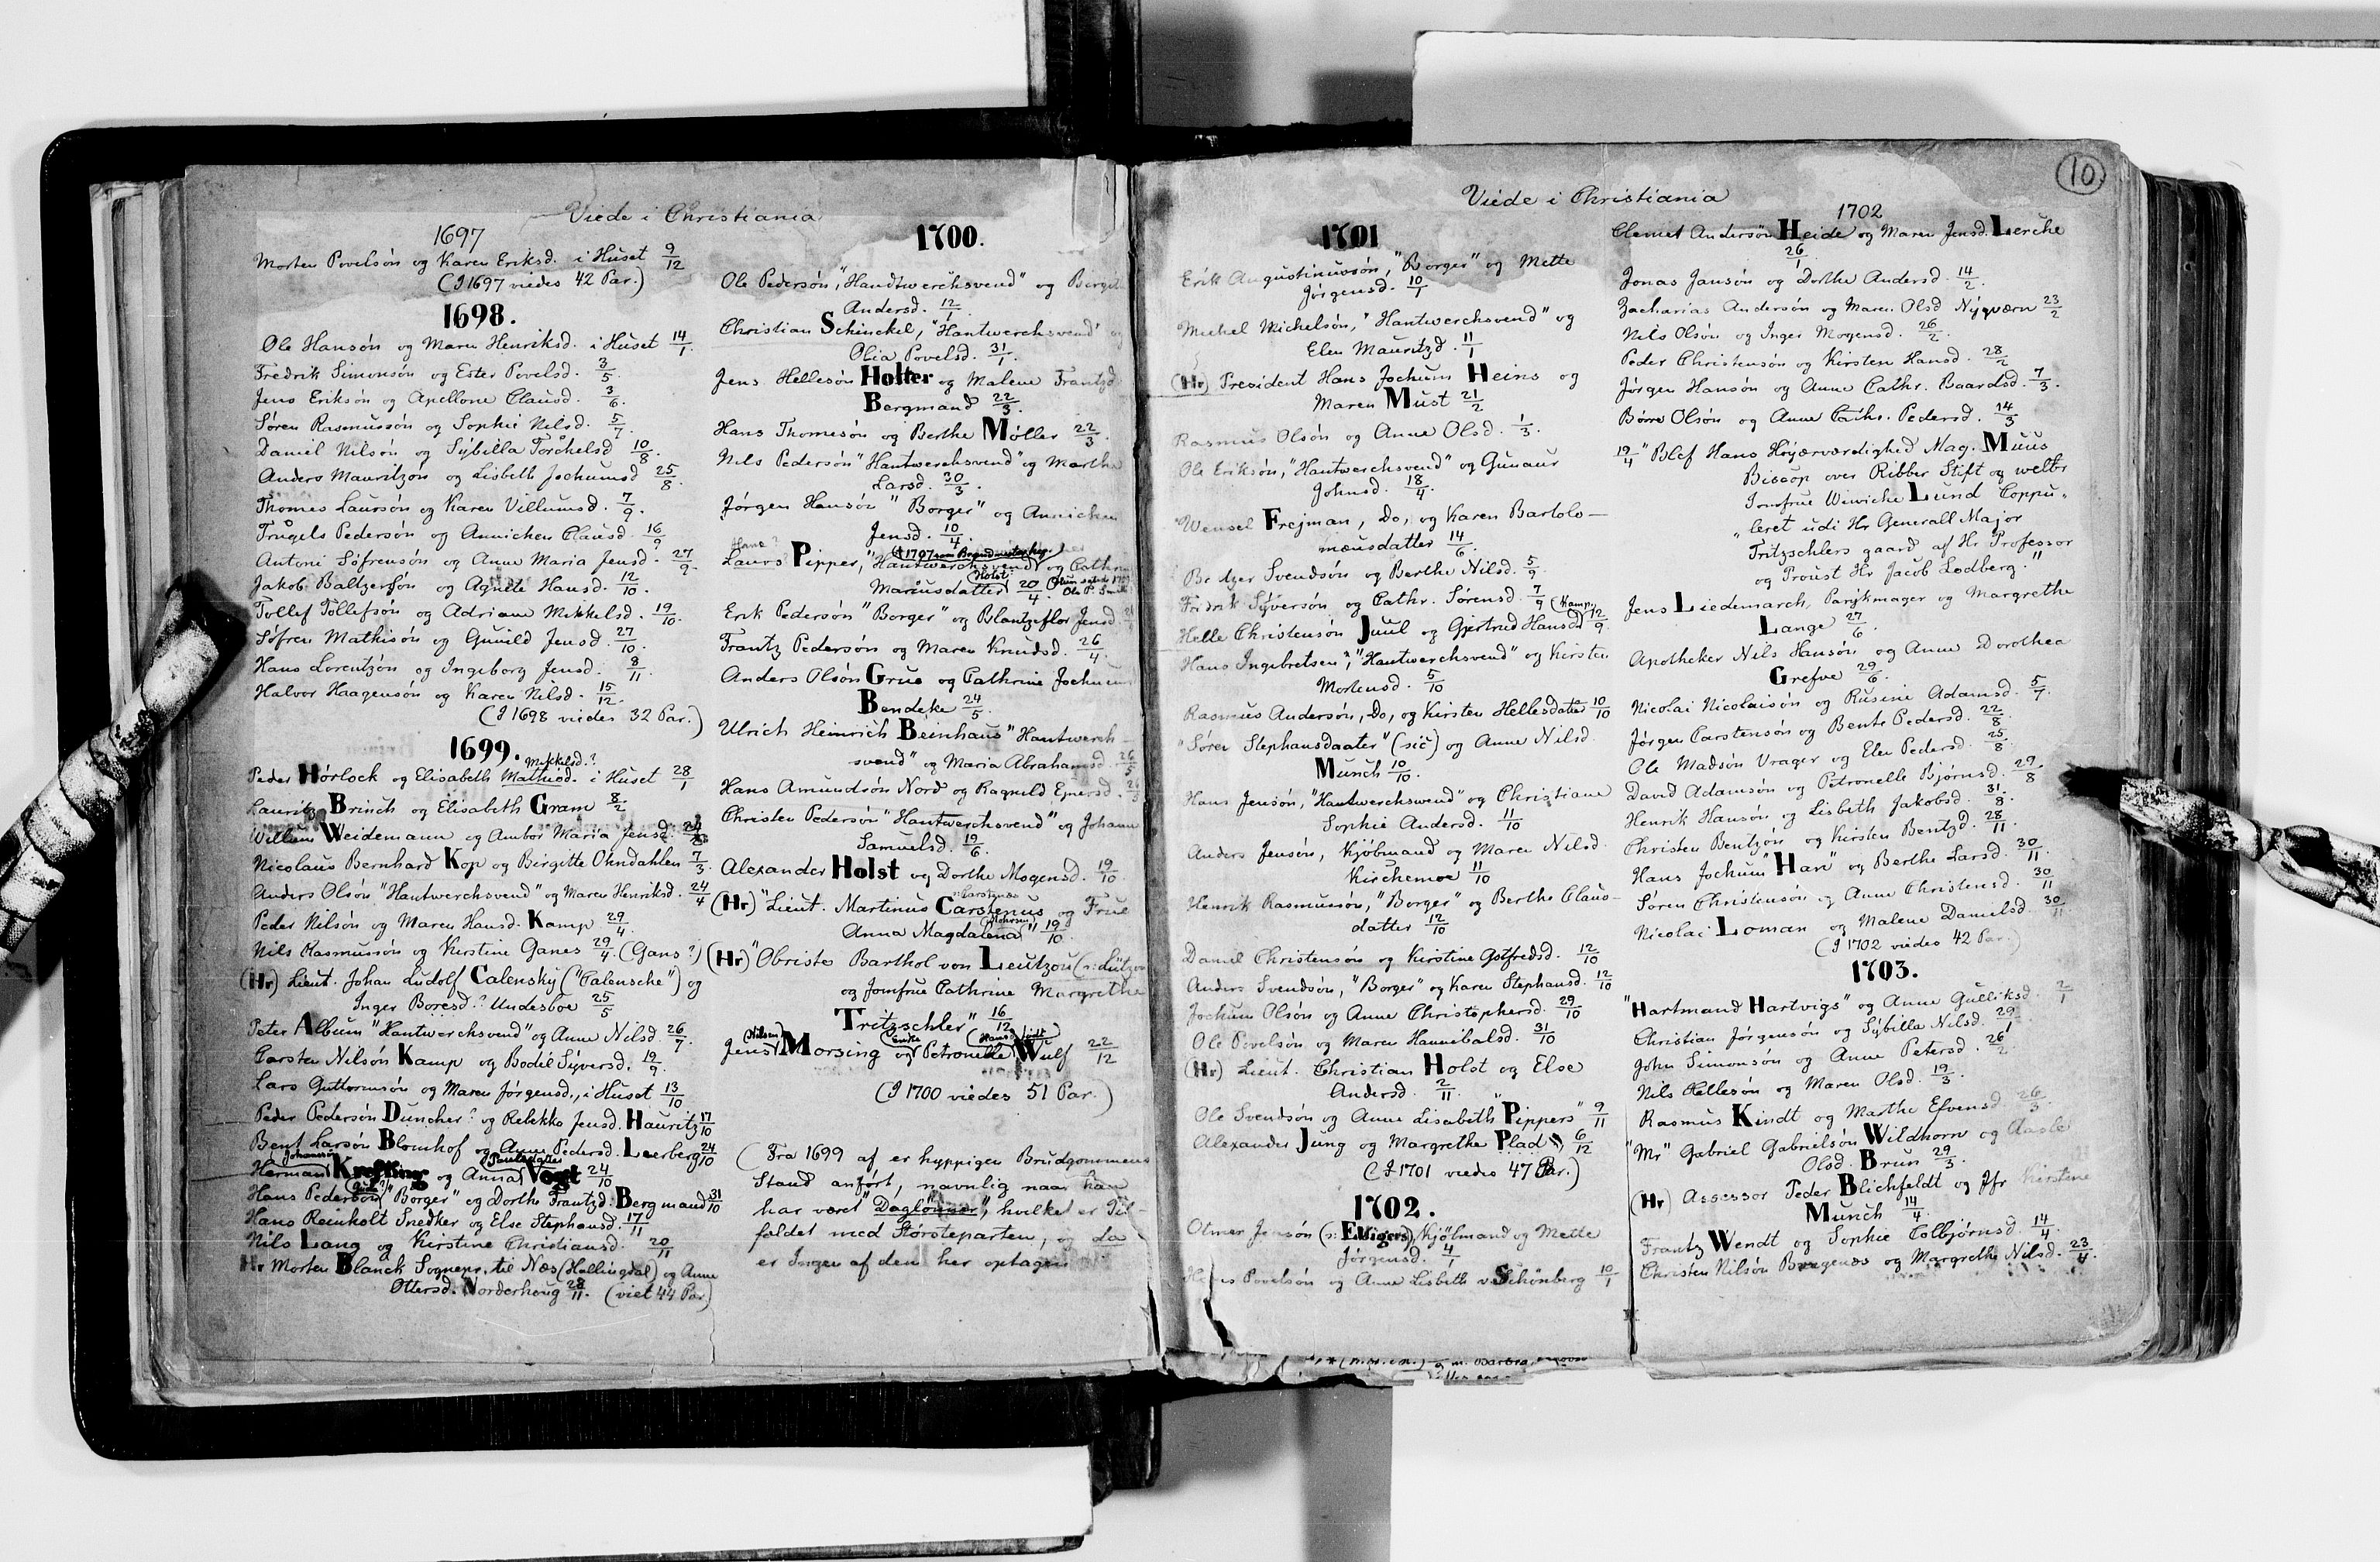 Viede i Christiania
1697
Morten Povelsón og Karen Eriksd. i Huset 9/12
(I 1697 viedes 42 Par.)
1698.
Ole Hansón og Maren Henriksd. i Huset 14/1.
Fredrik Simonsón og Ester Povelsd. 3/5.
Jens Eriksón og Apellone Clausd. 3/6.
Sóren Rasmussón og Sophie Nilsd. 5/7.
Daniel Nilsón og Sybilla Torchelsd 10/8.
Anders Mauritzón og Lisbeth Jochumsd 25/8.
Thomes Laursón og Karen Villumsd. 7/9.
Trugels Pedersón og Annichen Clausd. 16/9
Antoni Sófrensón og Anne Maria Jensd. 27/9.
Jakob Baltzersón og Agnete Hansd. 12/10.
Tollef Tollefsón og Adriane Mikkelsd. 19/10.
Sófren Mathisón og Gunild Jensd. 27/10.
Hans Lorentzón og Ingeborg Jensd. 8/11.
Halvor Haagensón og Karen Nilsd. 15/12.
(I 1698 viedes 32 Par.)
1699.
Mikkelsd.?
Peder Hórlock og Elisabeth Mathisd. i Huset 28/1
Lauritz Brinch og Elisabeth Gram 8/2
Villum Weidemann og Ambor Maria Jensd.
Nicolaus Bernhard Kop og Birgitte Ohndahlen 7/3.
Anders Olsón "Hantwerchsvend" og Maren Henriksd. 24/4
Peder Nilsón og Maren Hansd. Kamp 29/4.
Nils Rasmussón og Kirstine Ganes 29/4. (Gans?)
(Hr) Lieut. Johan Ludolf Calensky ("Calensche") og
Inger Boresd.? Undesboe 25/5
Peter Album "Hantwerchsvend" og Anne Nilsd. 26/7.
Carsten Nilsón Kamp og Bodil Syversd. 19/9.
Lars Guttormsón og Maren Jórgensd., i Huset 13/10
Peder Pedersón Duncher? og Rebekka Jensd. Hauritz 17/10
Bent Larsón Blomhof og Anne Pedersd. Leerberg 24/10
Johansón
Herman Krefting og Anna Vogt 24/10
Hans Pedersón "Borger" og Dorthe Frantzd. Bergmand 31/10
Hans Reinholt Snedker og Else Stephansd. 17/11
Nils Lang og Kirstine Christiansd. 20/11
Hr Morten Blanck Sognepr. til Næs (Hallingdal) og Anne
Ottersd. Norderhoug 28/11. (viet 44 Par)
1700.
Ole Pedersón, "Handtwerchsvend" og
Andersd. 12/1.
Christian Schinckel, "Hantwerchsvend"
Olia Povelsd. 31/1.
Jens Hellesón Holter og Malene Frantzd
Bergmand 22/3.
Hans Thomesón og Berthe Móller 22/3.
Nils Pedersón "Hantwerchsvend" og Marthe
Larsd. 30/3.
Jórgen Hansón "Borger" og Annichen
Jensd. 10/4.
Hans?
Laurs Pipper, "Hantwerchsvend" og Cathr
Holst
Mariusdatter 20/4.
Erik Pedersón "Borger" og Blantzeflor Jensd.
Frantz Pedersón og Maren Knudsd. 26/4.
Anders Olsón Grue og Cathrine Jochum
Bendeke 24/5.
Ulrich Heinrich Beinhaus "Hantwerch-
svend" og Maria Abrahamsd. 26/5
Hans Amundsón Nord og Ragnild Ejnersd.
Christen Pedersón "Hantwerchsvend" og Johanne
Samuelsd. 19/6.
Alexander Holst og Dorthe Mogensd. 19/10.
Carstens
(Hr) "Lieut. Martinus Carstenus og Frue
Anna Magdalena" 19/10.
(Hr) "Obriste Barthol von Leutzou (ɔ: Lützow
og Jomfrue Cathrine Margrethe
Tritzschler" 16/12
Nilsen Enke Hans
Jens Morsing og Petronelle Wulf 22/12
(I 1700 viedes 51 Par.)
(Fra 1699 af er hyppigen Brudgommens
Stand anfórt, navnlig naar han
har været "Daglónner", hvilket er Til-
fældet med Stórsteparten, og da
er Ingen af dem her optagen
10
Viede i Christiania
1701
Erik Augustinussón, "Borger" og Mette
Jórgensd. 10/1
Michel Michelsón, "Hantwerchsvend" og
Elen Mauritzd. 11/1
(Hr) President Hans Jochum Heins og
Maren Must 21/2
Rasmus Olsón og Anne Olsd. 1/3.
Ole Eriksón, "Hantwerchsvend" og Gunaur
Johnsd. 18/4.
"Wensel Frejman, Do, og Karen Bartolo-
mæusdatter 14/6.
Svendsón og Berthe Nilsd. 5/9.
Fridrik Syversón og Cathr. Sórensd. 7/9
(Kamp)
Helle Christensón Juul og Gjertrud Hansd 12/9.
Hans Ingebretsen, "Hantwerchsvend" og Kirsten
Mortensd. 5/10
Rasmus Andersón, Do, og Kirsten Hellesdatter 10/10
"Sóren Stephansdaater" (sic) og Anne Nilsd.
Munch 10/10.
Hans Jensón, "Hantwerchsvend" og Christiane
Sophie Andersd. 11/10
Anders Jensón, Kjóbmand og Maren Nilsd.
Kirchemoe 11/10
Henrik Rasmussón, "Borger" og Berthe Claus-
datter 12/10
Daniel Christensón og Kirstine Gotfredsd. 12/10
Anders Svendsón, "Borger" og Karen Stephansd. 12/10
Jochum Olsón og Anne Christophersd. 29/10
Ole Povelsón og Maren Hannibalsd. 31/10
(Hr) Lieut. Christian Holst og Else
Andersd. 2/11.
Ole Svendsón og Anne Lisabeth "Pippers" 9/11
Alexander Jung og Margrethe Plad 6/12
(I 1701 viedes 47 Par.)
1702.
Otmer Jensón (ɔ: Elligers), Kjóbmand og Mette
Jórgensd. 4/1
Povelsón og Anne Lisbeth v. Schónberg 10/1
1702
Clemet Andersón Heide og Maren Jensd. Lerche
26/1
Jonas Jansón og Dorthe Andersd. 14/2.
Zacharias Andersón og Maren Olsd Nyqværn 23/2
Nils Olsón og Inger Mogensd. 26/2.
Peder Christensón og Kirsten Hansd. 28/2
Jórgen Hansón og Anne Cathr. Baardsd. 7/3.
Bórre Olsón og Anne Cathr. Pedersd. 14/3
19/4 "Blef Hans Hójærværdighed Mag. Muus
Biscop over Ribber Stift og welbr
Jomfrue Wiwiche Lund Coppu-
leret udi Hr Generall Major
"Tritzschlers gaard af Hr Professor
og Proust Hr Jacob Lodberg."
Jens Liedemarch, Parykmager og Margrethe
Lange 27/6.
Apotheker Nils Hansón og Anne Dorothea
Grefve 29/6.
Nicolai Nicolaisón og Rusine Adamsd. 5/7.
Jórgen Carstensón og Bente Pedersd. 22/8.
Ole Madsón Vrager og Elen Pedersd. 25/8.
David Adamsón og Petronelle Bjórnsd. 29/8
Henrik Hansón og Lisbeth Jakobsd. 31/8.
Christen Bentzón og Kirsten Bentzd. 28/11.
Hans Jochum "Har" og Berthe Larsd. 30/11.
Sóren Christensón og Anne Christensd. 30/11
Nicolai Loman og Malene Danielsd. 30/11
(I 1702 viedes 42 Par.)
1703.
"Hartmand Hartvigs" og Anne Gulliksd. 2/1
Christian Jórgensón og Sybilla Nilsd. 29/1
John Simonsón og Anne Petersd. 26/2
Nils Hellesón og Maren Olsd. 19/3.
Rasmus Kindt og Marthe Efvensd 26/3.
"Mr" Gabriel Gabrielsón Wildhorn og Aasle
Olsd. Brun 29/3.
(Hr) Assessor Peder Blichfeldt og Jfr Kirstine
Munch 14/4.
Frantz Wendt og Sophie Colbjórnsd. 14/4
Christen Nilsón Bragenæs og Margrethe Nilsd. 23/4.